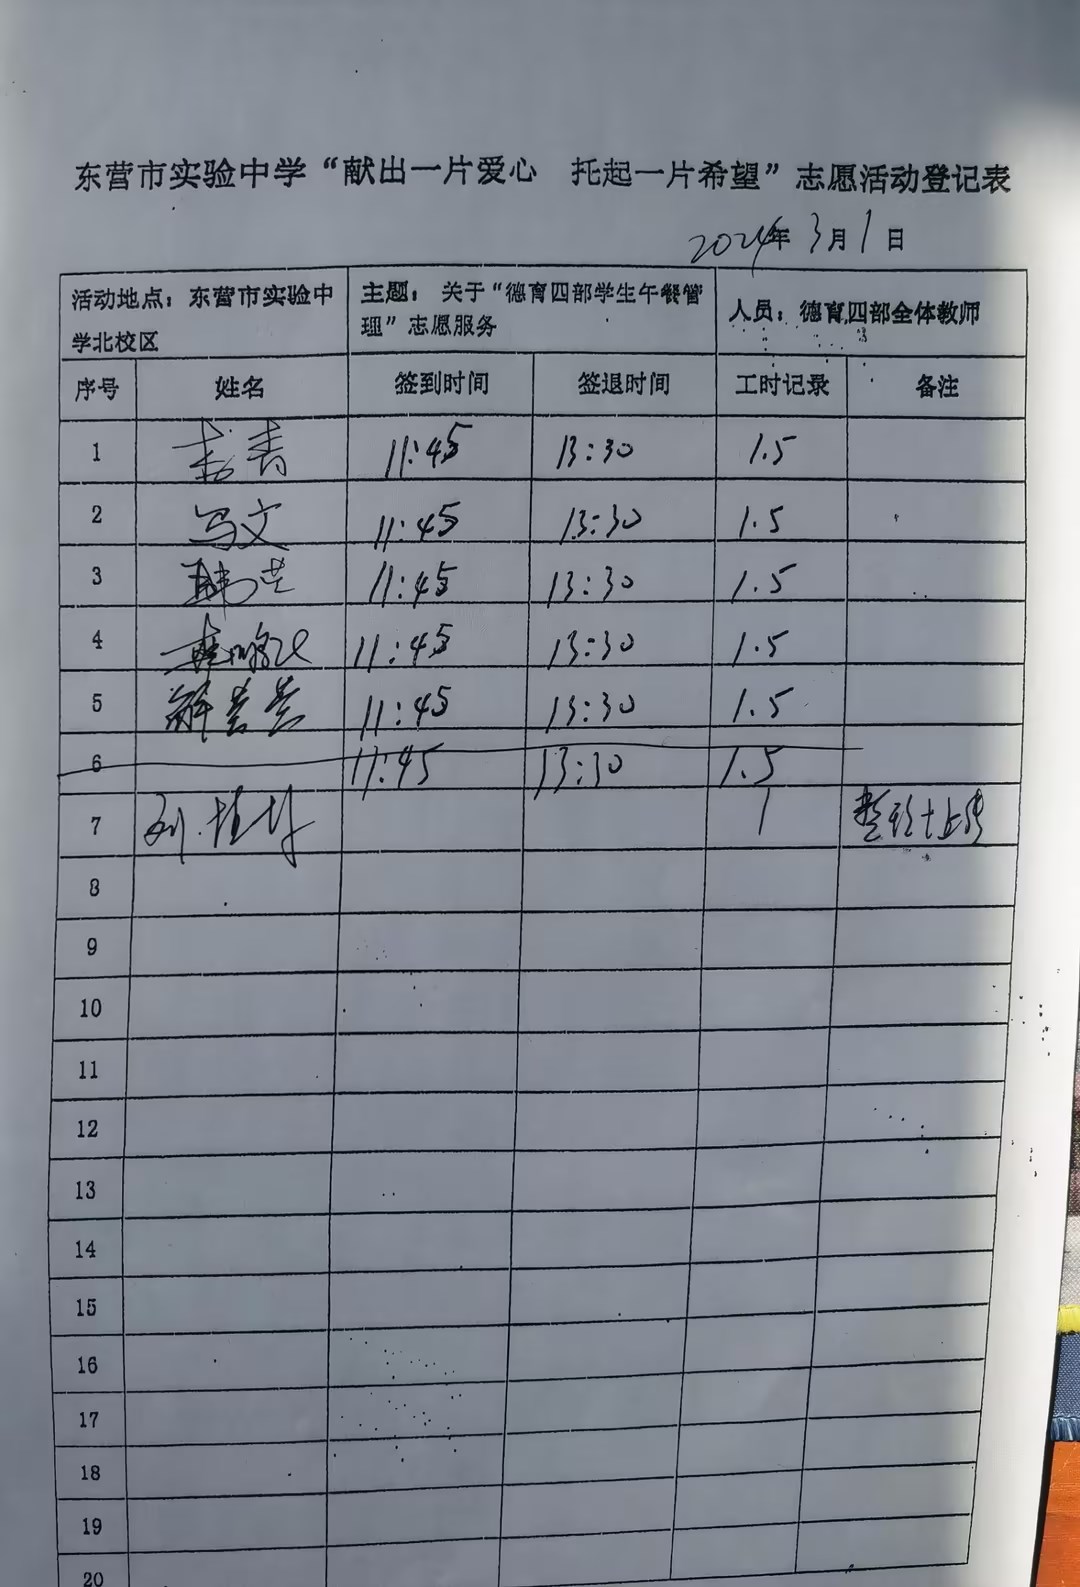 东营市实验中学“献出一片爱心 托起一片希望”志愿活动登记表
2024年3月1日
活动地点：东营市实验中学北校区 主题：关于“德育四部学生午餐管理”志愿服务 人员：德育四部全体教师
序号 姓名 签到时间 签退时间 工时记录 备注
1 11:45 13:30 1.5
2 冯文 11:45 13:30 1.5
3 11:45 13:30 1.5
4 11:45 13:30 1.5
5 解芸芸 11:45 13:30 1.5
6 11:45 13:30 1.5
7 1
8
9
10
11
12
13
14
15
16
17
18
19
20